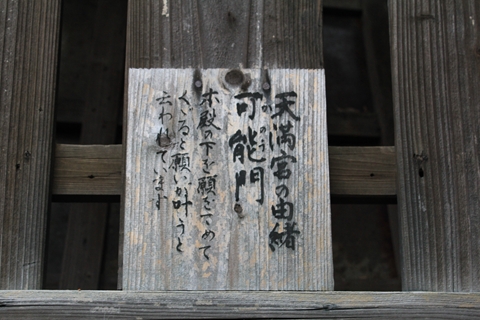 天満宮の由緒
可能門
かのう
本殿の下を願をこめて
くぐると願いが叶うと
云われています